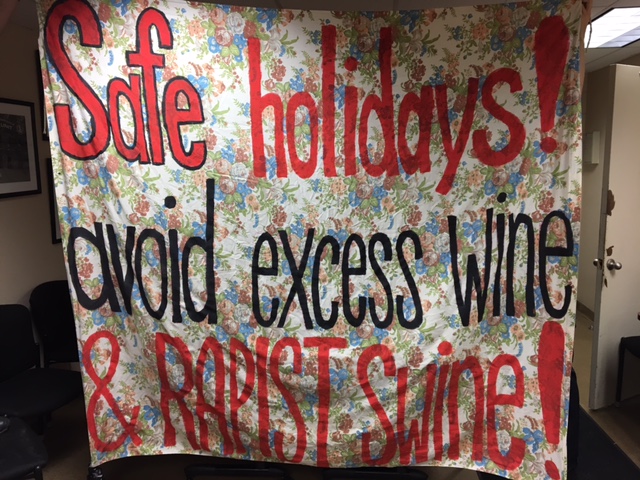 Safe holidays!
avoid excess wine
& RAPIST Swine!